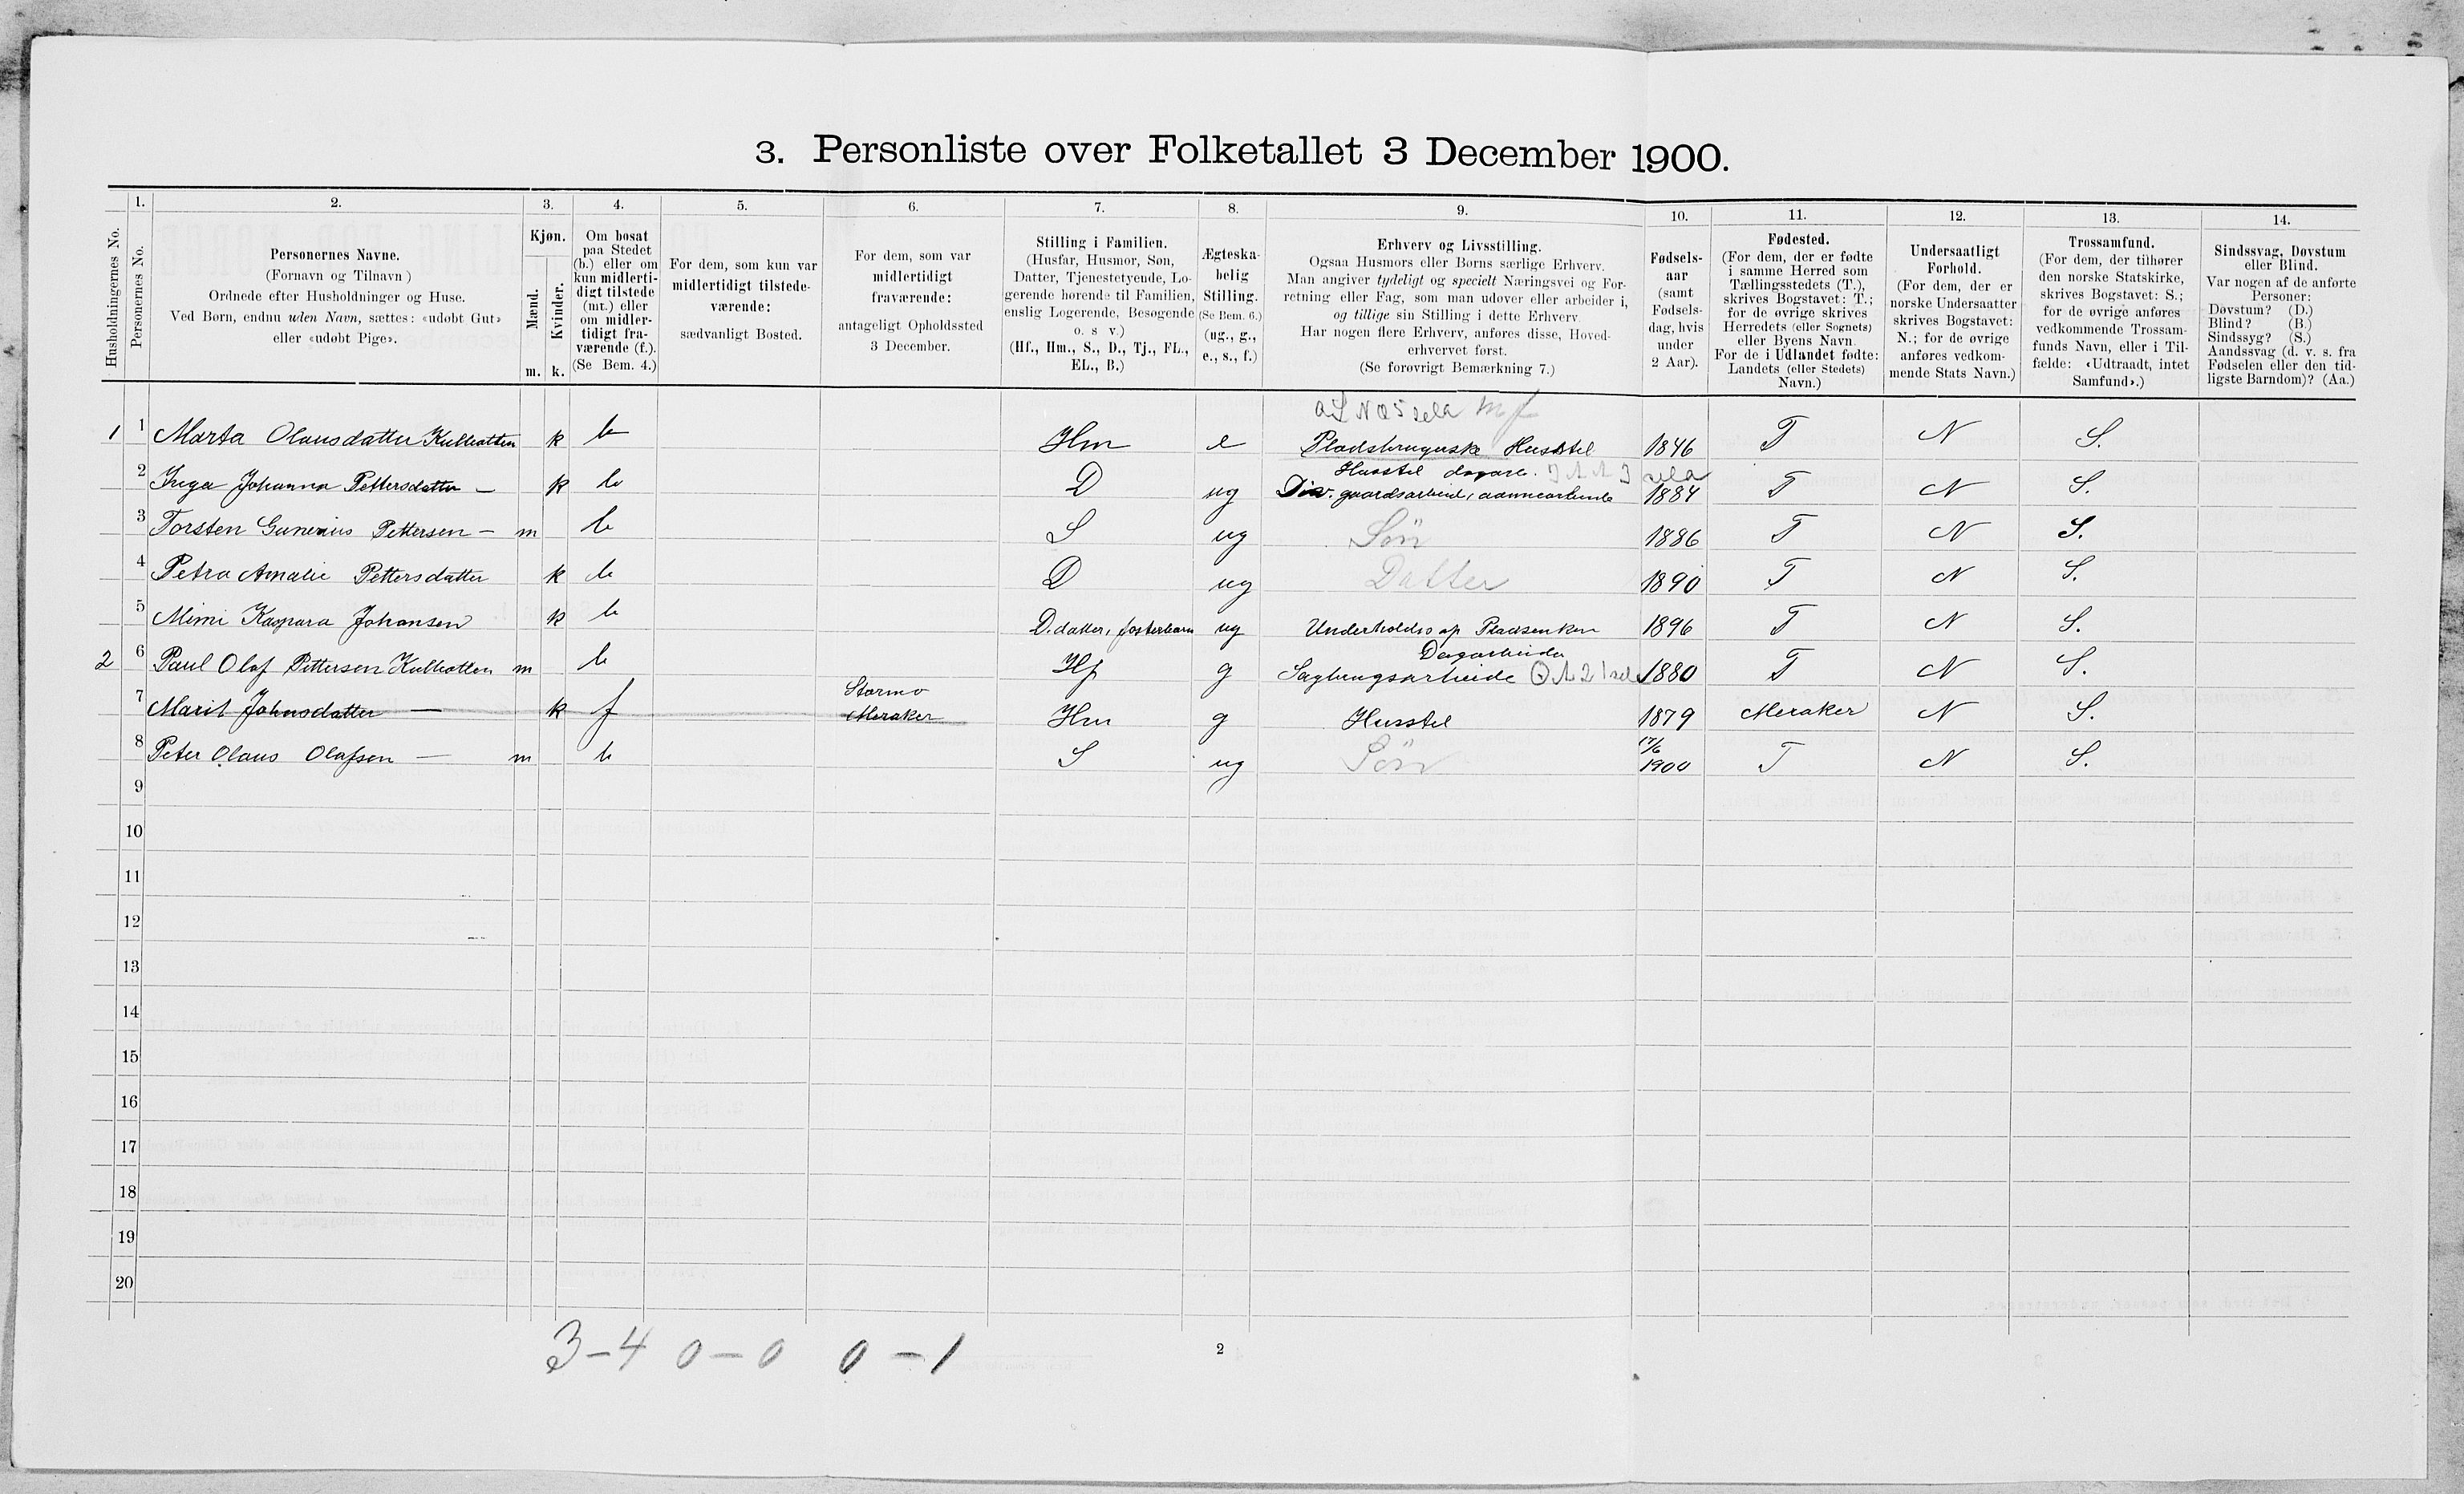 3. Personliste over Folketallet 3 December 1900.
1. 2. 3. 4. 5. 6. 7. 8. 9. 10. 11. 12. 13. 14.
Husholdningernes No.
Personernes No.
Personernes Navne.
(Fornavn og Tilnavn)
Ordnede efter Husholdninger og Huse.
Ved Børn, endnu uden Navn, sættes: «udøbt Gut»
eller «udøbt Pige».
Kjøn.
Mænd.
Kvinder.
m. k.
Om bosat
paa Stedet
(b.) eller om
kun midlerti-
digt tilstede
(mt.) eller
om midler-
tidigt fra-
værende (f.).
(Se Bem. 4.)
For dem, som kun var
midlertidigt tilstede-
værende:
sædvanligt Bosted.
For dem, som var
midlertidigt
fraværende:
antageligt Opholdssted
3 December.
Stilling i Familien.
(Husfar, Husmor, Søn,
Datter, Tjenestetyende, Lo-
gerende hørende til Familien,
enslig Logerende, Besøgende
o. s v.)
(Hf., Hm., S., D., Tj., FL.,
EL., B.)
Ægteska-
belig
Stilling.
(Se Bem. 6.)
(ug., g.,
e., s., f.)
Erhverv og Livsstilling.
Ogsaa Husmors eller Børns særlige Erhverv.
Man angiver tydeligt og specielt Næringsvei og For-
retning eller Fag, som man udover eller arbeider i,
og tillige sin Stilling i dette Erhverv.
Har nogen flere Erhverv, anføres disse, Hoved-
erhvervet først.
(Se forøvrigt Bemærkning 7.)
Fødsels-
aar
(samt
Fødsels-
dag, hvis
under
2 Aar).
Fødested.
(For dem, der er fødte
i samme Herred som
Tællingsstedets (T.),
skrives Bogstavet: T.;
for de øvrige skrives
Herredets (eller Sognets)
eller Byens Navn.
For de i Udlandet fødte:
Landets (eller Stedets)
Navn.)
Undersaatligt
Forhold.
(For dem, der er
norske Undersaatter
skrives Bogstavet:
N.; for de øvrige
anføres vedkom-
mende Stats Navn.)
Trossamfund.
(For dem, der tilhører
den norske Statskirke,
skrives Bogstavet: S.;
for de øvrige anføres
vedkommende Trossam-
funds Navn, eller i Til-
fælde: «Udtraadt, intet
Samfund».)
Sindssvag, Døvstum
eller Blind.
Var nogen af de anførte
Personer:
Døvstum? (D.)
Blind? (B.)
Sindssyg? (S.)
Aandssvag (d. v. s. fra
Fødselen eller den tid-
ligste Barndom)? (Aa.)
1 1 Marta Olausdatter k b Hm e Pladsbrugerske Husstel 1846 T N S.
Husstel
2 Inga Johanna Pettersdatter — k b D ug Div. gaardsarbeide, 1884 T N S.
3 Torsten Gunerius Pettersen — m b S ug Søn 1886 T N S.
4 Petra Amalie Pettersdatter k b D ug Datter 1890 T N S.
5 Mimi Kaspara Johansen k b D.datter, fosterbarn ug Underholdes af 1896 T N S.
Dagarbeider
2 6 Paul Olaf Pettersen m b Hf g 1880 T N S.
Stormo
7 Marit Johnsdatter — k f Meraker Hm g Husstel 1879 Meraker N S.
17/6
8 Peter Olaus Olafsen — m b S ug Søn 1900 T N S.
9
10
11
12
13
14
15
16
17
18
19
20
3 – 4 0 – 0 0 – 1
2